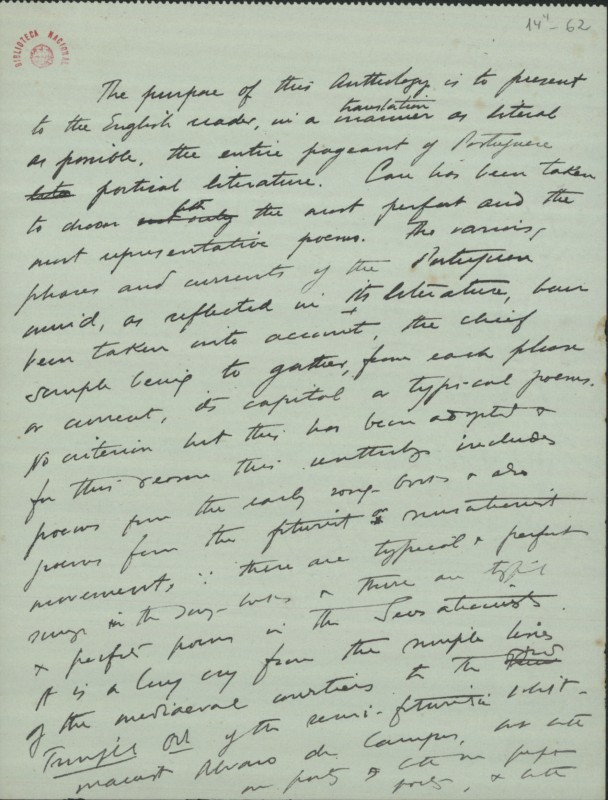 14⁴ – 62
BIBLIOTECA NACIONAL
The purpose of this Anthology is to present
translation
to the English reader, in a manner as literal
as possible, the entire pageant of Portuguese
poetical literature. Care has been taken
both
to choose not only the most perfect and the
most representative poems. The various
phases and currents of the Portuguese
mind, as reflected in its literature, have
been taken into account, the chief
being to gather, from each phase
or current, its capital or typical poems.
No criterion but this has been adopted &
for this reason this anthology includes
poems from the early song-books & also
poems from the futurist or sensationist
movements, ∵ there are typical & perfect
songs in the song-books & there are typical
& perfect poems in the Sensationists.
It is a long cry from the simple lines
of the mediaeval courtiers to the
Triumphal Ode of the semi-futurist
Alvaro de Campos, as all
are poets & all are
poets, & all